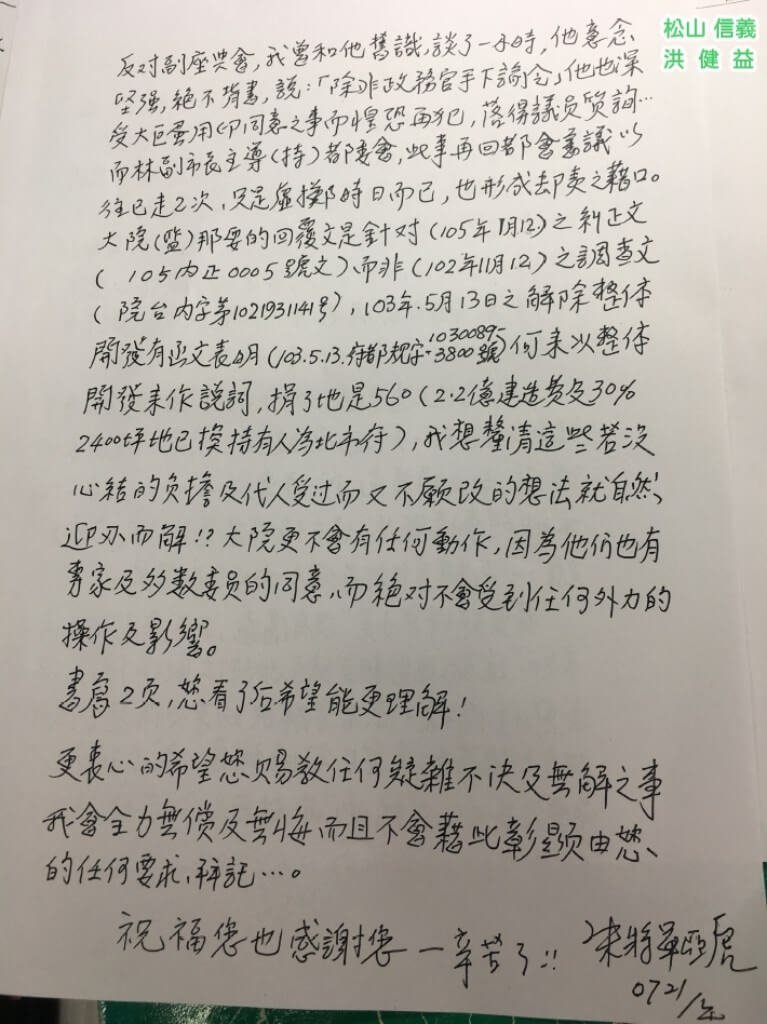 松山 信義
洪 健 益
反对副座與會,我曾和他舊識,談了一小時,他意念
堅强,絕不背書,說:「除非政務官手下諭令」他也深
受大巨蛋用印同意之事而惶恐再犯,落得議员質詢…
而林副市長主導(持)都委會,此事再回都會審議以
往已走2次,只是虛擲時日而已,也形成卸責之藉口。
大院(監)那要的回覆文是針对(105年1月12)之糾正文
(105内正0005號文)而非(102年11月12)之調查文
(院台内字第1021931141号),103年.5月13日之解除整体
開發有函文表明(103.5.13.府都規字-10300893800號)何来以整体
開發来作説詞,捐了地是560(2.2億建造费及30%
2400坪地已换持有人為北市府),我想釐清這些若沒
心結的负擔及代人受过而又不願改的想法就自然、
迎刃而解!?大院更不會有任何動作,因為他们也有
專家及多數委员的同意,而絕对不會受到任何外力的
操作及影響。
書寫2页,您看了后希望能更理解!
更衷心的希望您賜教任何疑難不决及無解之事
我會全力無償及無悔而且不會藉此彰顯由您、
的任何要求,拜託…。
祝福您也感謝您一辛苦了!!
0721/